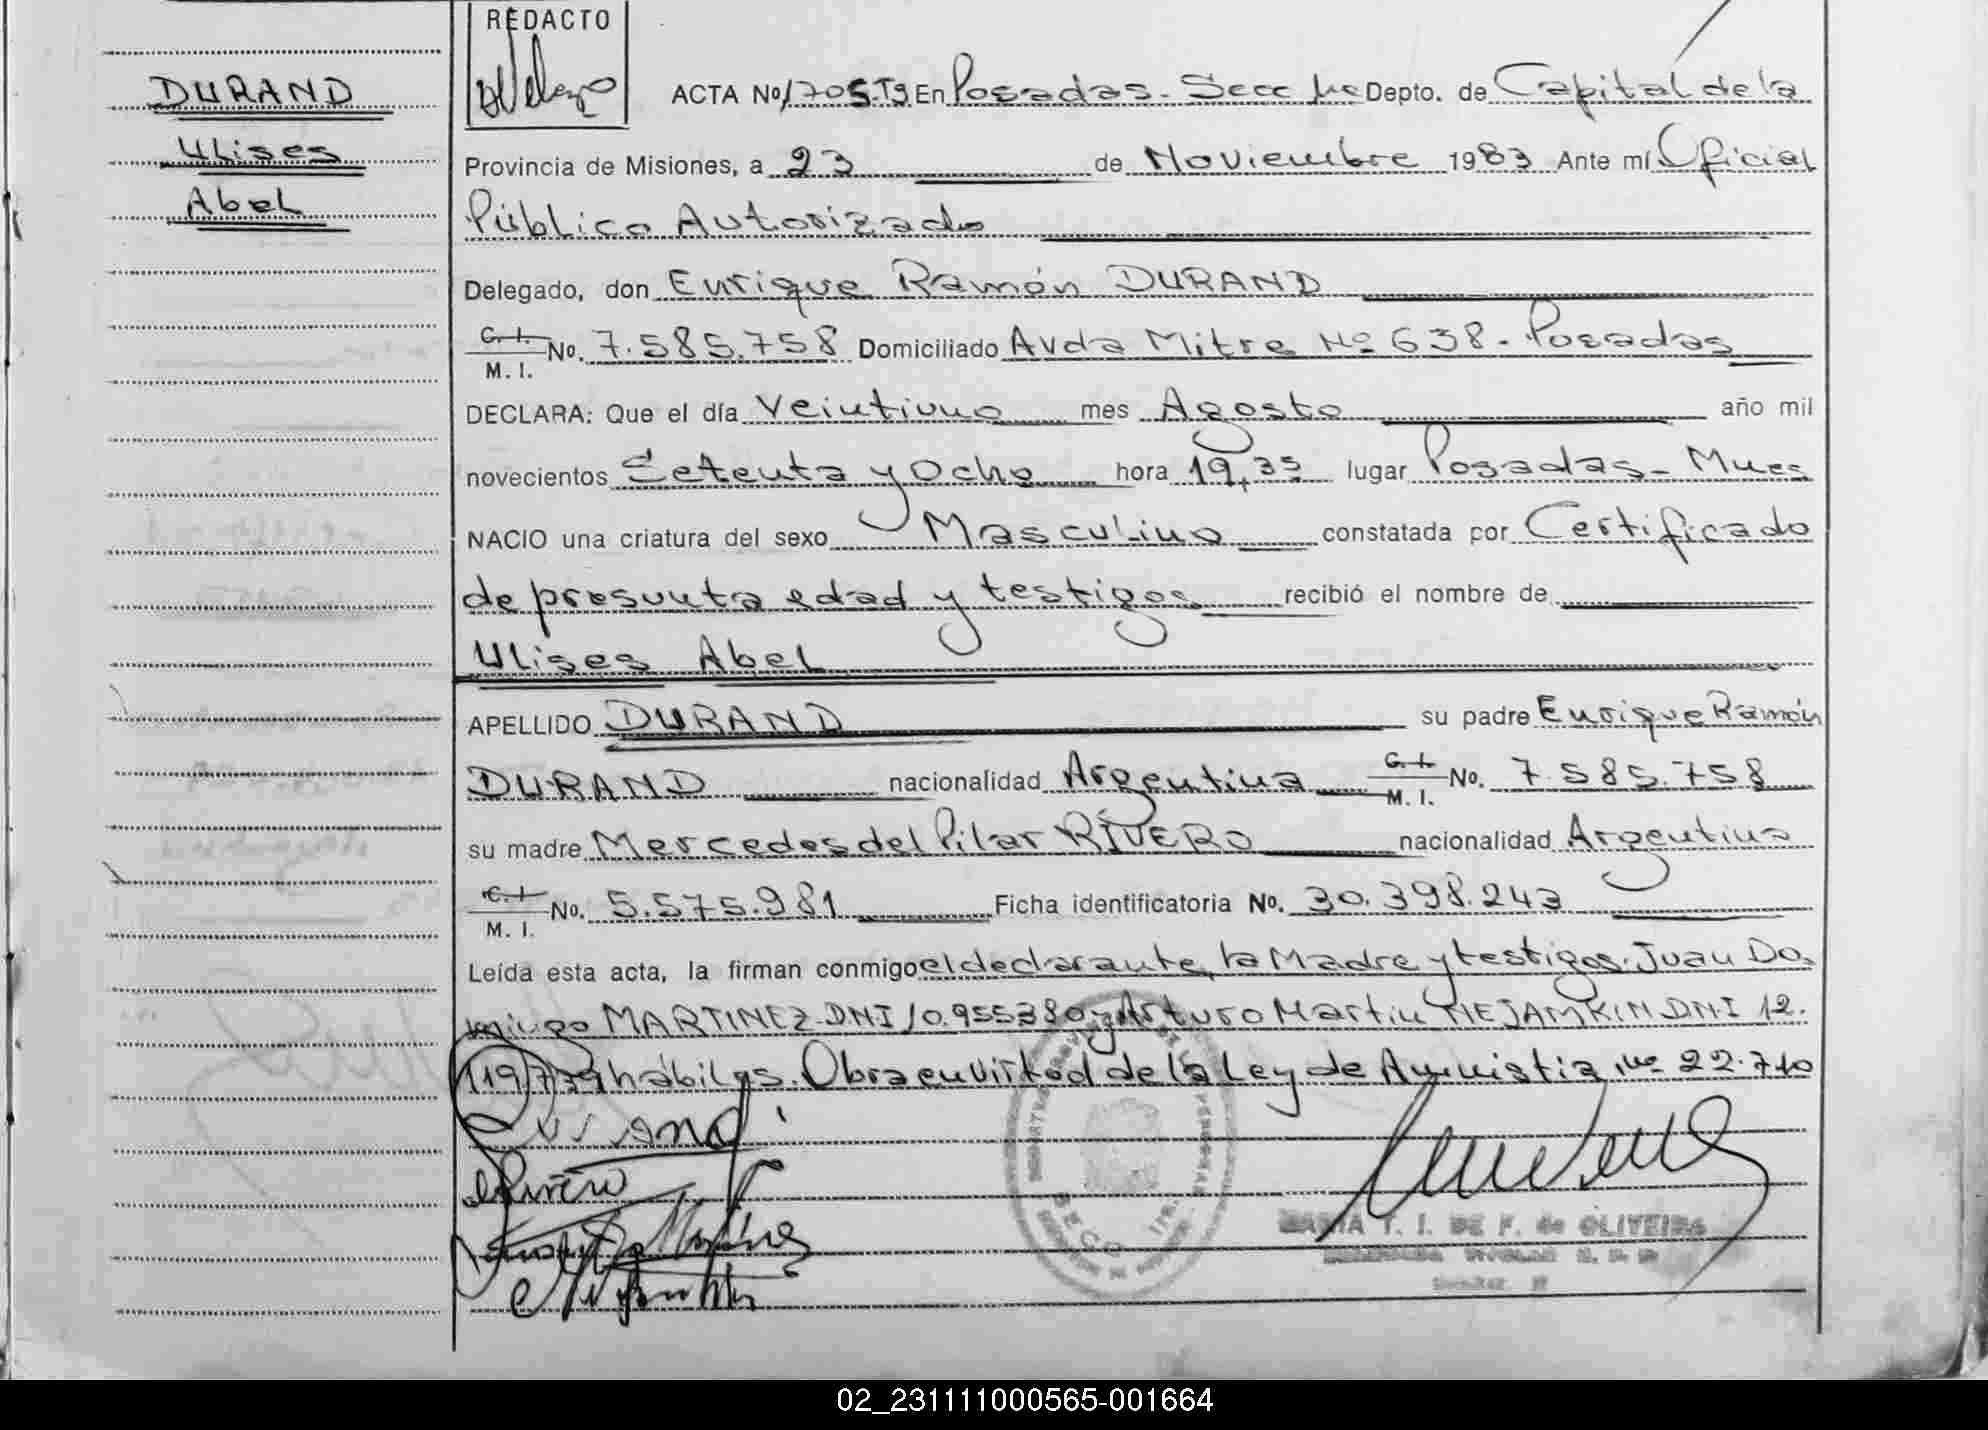 REDACTO
DURAND
Ulises
Abel
ACTA No 1705.T9 En Posadas - Secc 1ra Depto. de Capital de la
Provincia de Misiones, a 23 de Noviembre 1983 Ante mí Oficial
Público Autorizado
Delegado, don Enrique Ramón DURAND
C. I. M. I. No. 7.585.758 Domiciliado Avda Mitre Nº 638 - Posadas
DECLARA: Que el día Veintiuno mes Agosto año mil
novecientos Setenta y Ocho hora 19,35 lugar Posadas - Mnes
NACIO una criatura del sexo Masculino constatada por Certificado
de presunta edad y testigos recibió el nombre de
Ulises Abel
APELLIDO DURAND su padre Enrique Ramón
DURAND nacionalidad Argentina C. I. M. I. No. 7.585.758
su madre Mercedes del Pilar RIVERO nacionalidad Argentina
C. I. M. I. No. 5.575.981 Ficha identificatoria No. 30.398.243
Leída esta acta, la firman conmigo el declarante, la Madre y testigos: Juan Do.
mingo MARTINEZ DNI 10.955380 y Arturo Martin DNI 12.
119739 hábiles. Obra en virtud de la Ley de Amnistia Nº 22.710
Durand
MARIA T. I. DE F. de OLIVEIRA
02_231111000565-001664